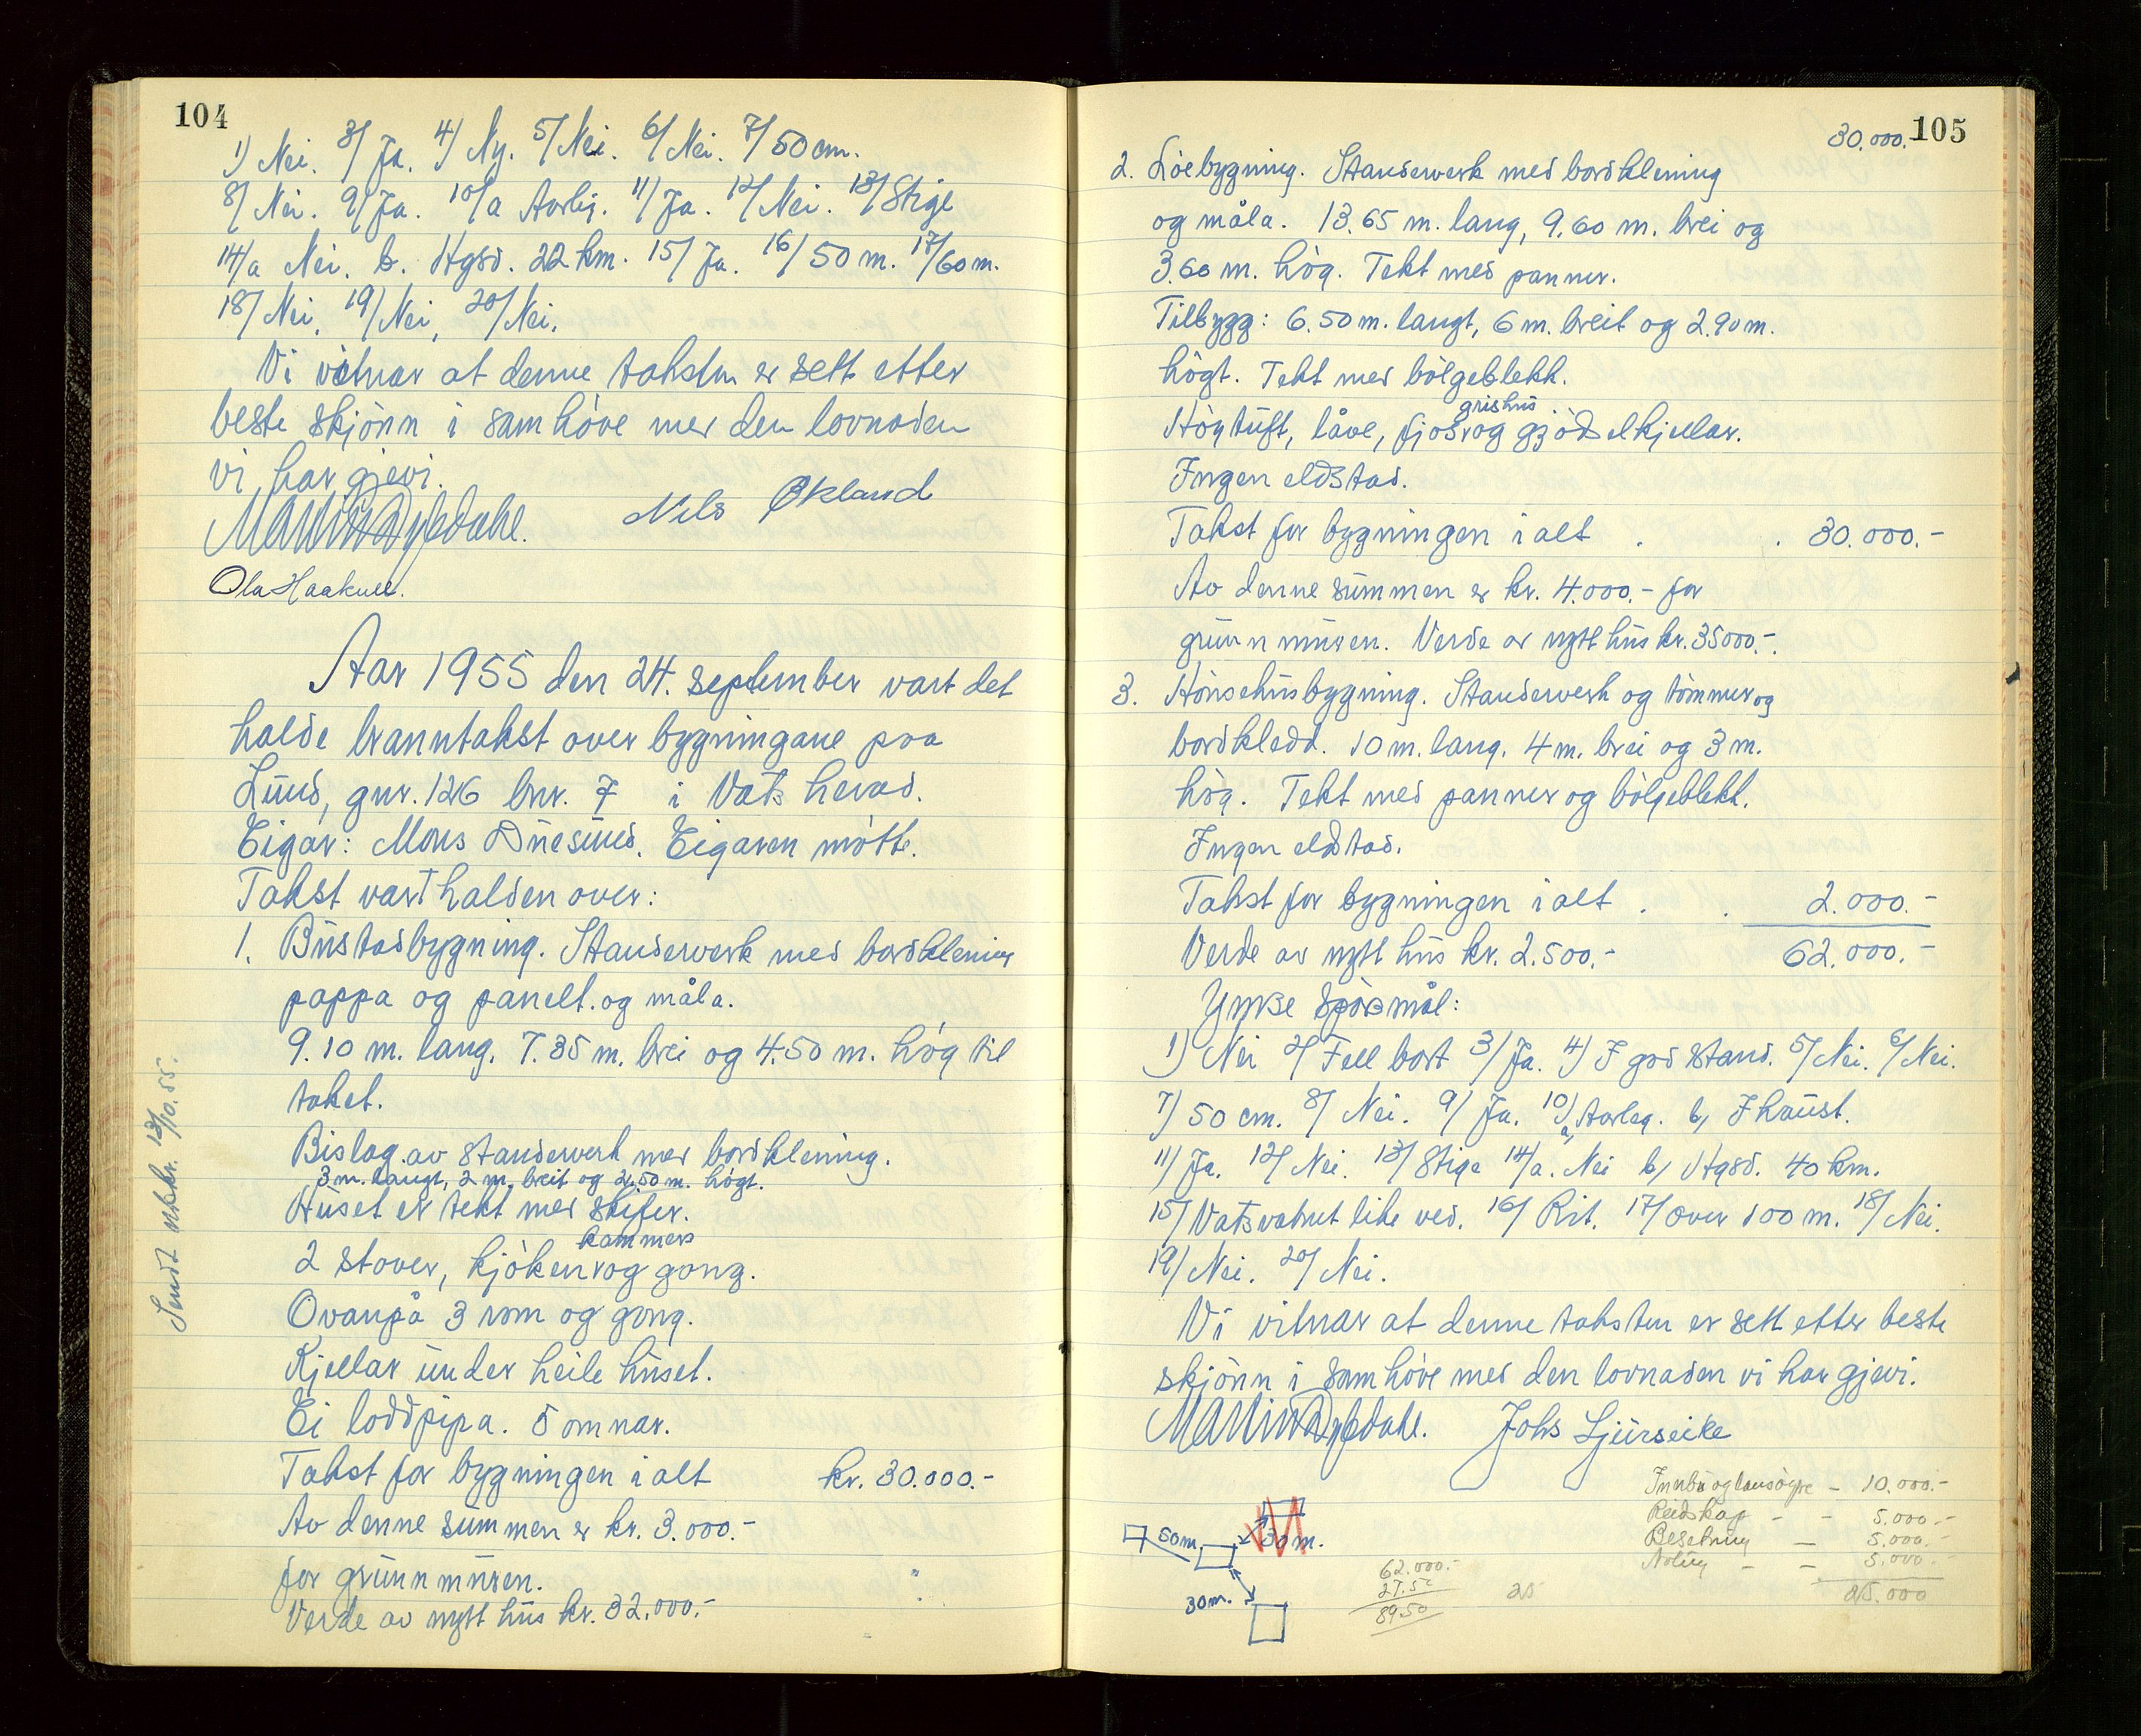 104
1) Nei. 3/ Ja. 4/ Ny. 5/ Nei. 6/ Nei. 7/ 50 cm.
8/ Nei. 9/ Ja. 10/a Aarleg. 11/ Ja. 12/ Nei. 13/ Stige
14/a Nei. b. Hgsd. 22 km. 15/ Ja. 16/ 50 m. 17/ 60 m.
18/ Nei, 19/ Nei, 20/ Nei.
Vi vitnar at denne taksten er sett etter
beste skjönn i samhöve med den lovnaden
vi har gjevi.
Nils Økland
Ola Haakull.
Aar 1955 den 24. september vart det
halde branntakst over bygningane paa
Lund, gnr. 126 bnr. 7 i Vats herad.
Eigar: Mons Duesund. Eigaren mötte.
Takst vart halden over:
1. Bustadbygning. Standerverk med bordklening
pappa og panelt. og måla.
9.10 m. lang. 7.35 m. brei og 4.50 m. hög til
taket.
Bislag av standerverk med bordklening.
3 m. langt, 2 m. breit og 2.50 m. högt.
Huset er tekt med skifer.
kammers
2 stover, kjöken og gong.
Ovanpå 3 rom og gong.
Kjellar under heile huset.
Ei loddpipa. 5 omnar.
Takst for bygningen i alt kr. 30.000.-
Av denne summen er kr. 3.000.-
for grunnmuren.
Verde av nytt hus kr. 32.000.-
Sendt 13/10.55.
105
30.000.-
2. Löebygning. Standerverk med bordklening
og måla. 13.65 m. lang, 9.60 m. brei og
3.60 m. hög. Tekt med panner.
Tilbygg: 6.50 m. langt, 6 m. breit og 2.90 m.
högt. Tekt med bölgeblekk.
grishus
Högtuft, låve, fjos og gjödselkjellar.
Ingen eldstad.
Takst for bygningen i alt . . 30.000.-
Av denne summen er kr. 4.000.- for
grunnmuren. Verde av nytt hus kr. 35000.-.
3. Hönsehusbygning. Standerverk og tömmer og
bordkledd. 10 m. lang. 4 m. brei og 3 m.
hög. Tekt med panner og bölgeblekk.
Ingen eldstad.
Takst for bygningen i alt . . 2.000.-
Verde av nytt hus kr. 2.500.- 62.000.-
Ymse spörsmål:
1) Nei 2/ Fell bort 3/ Ja. 4/ I god stand. 5/ Nei. 6/ Nei.
7/ 50 cm. 8/ Nei. 9/ Ja. 10/ a, Aarleg. b, I haust.
11/ Ja. 12/ Nei. 13/ Stige 14/a. Nei b, Hgsd. 40 km.
15/ Vatsvatnet like ved. 16/ Rit. 17/ over 100 m. 18/ Nei.
19/ Nei. 20/ Nei.
Vi vitnar at denne taksten er sett etter beste
skjönn i samhöve med den lovnaden vi har gjevi.
Johs Ljürseike
50 m.
30 m.
30 m.
62.000.-
27.50
89.50
25
Innbu og lausöyre - 10.000.-
Reidskap - - 5.000.-
Besetning - 5.000.-
Avling - - 5.000.-
25.000